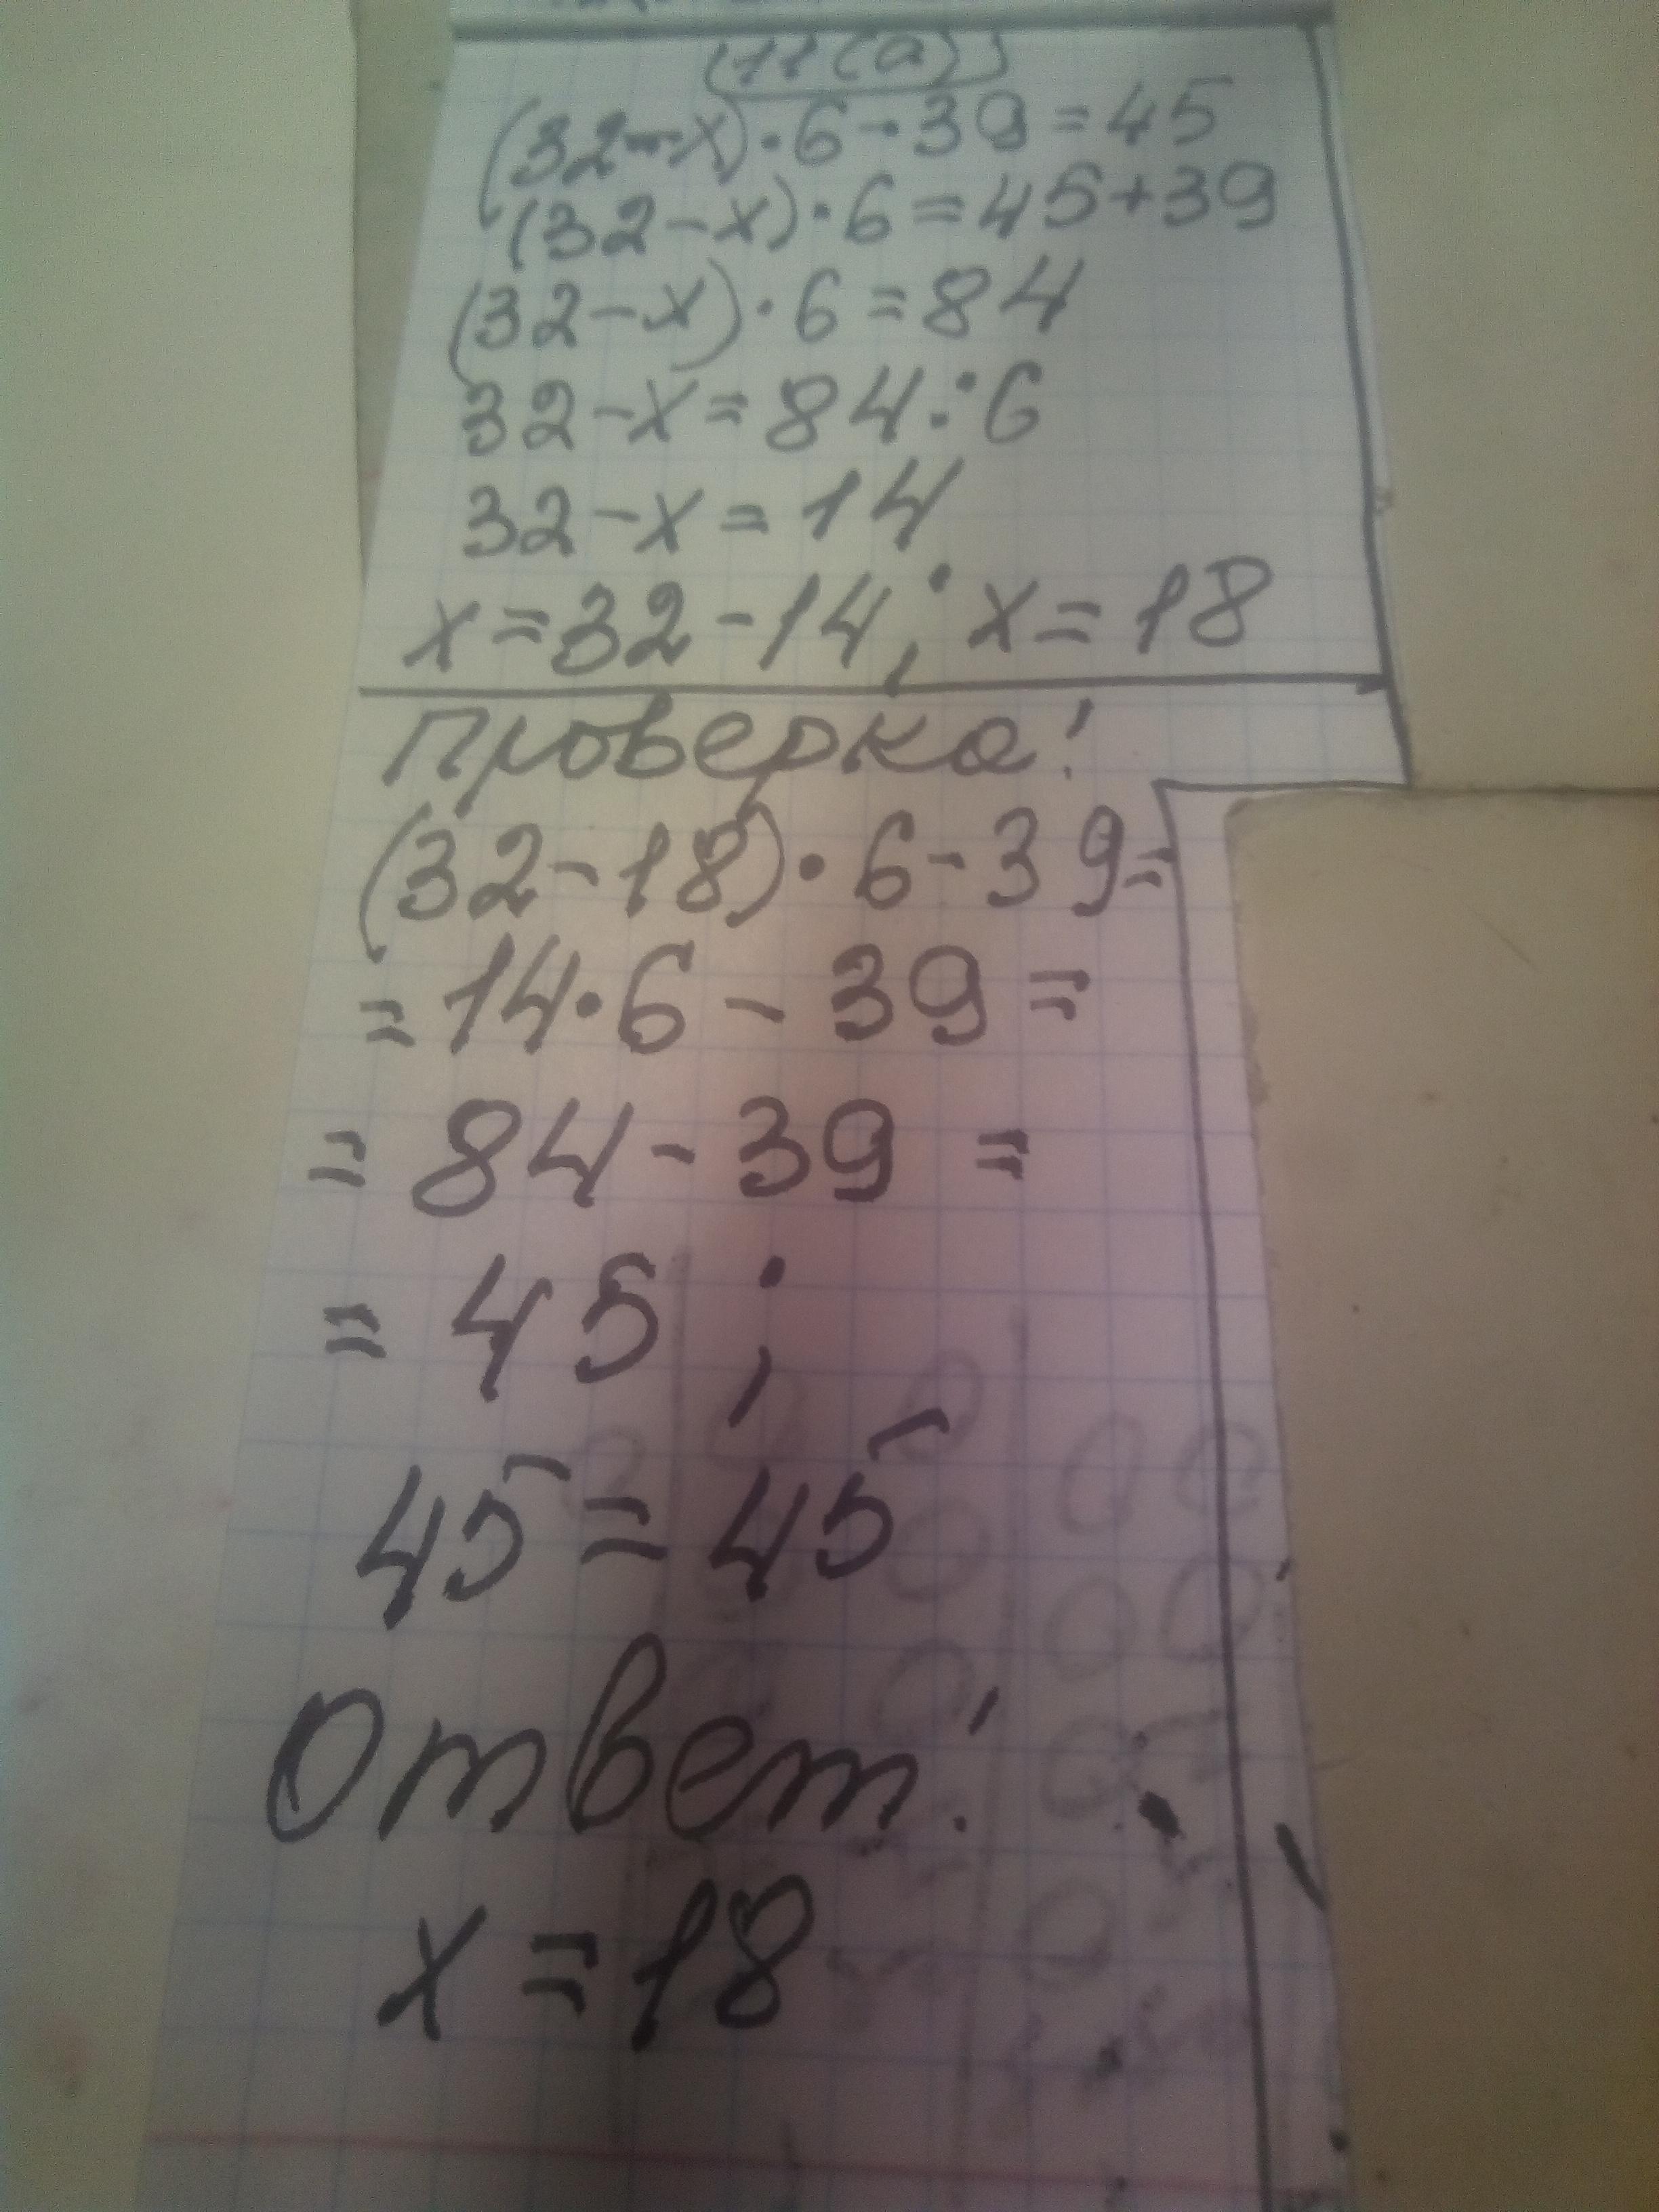 11(а)
(32-x)·6-39=45
(32-x)·6=45+39
(32-x)·6=84
32-x=84:6
32-x=14
x=32-14; x=18
Проверка!
(32-18)·6-39=
=14·6-39=
=84-39=
=45;
45=45
Ответ!
x=18